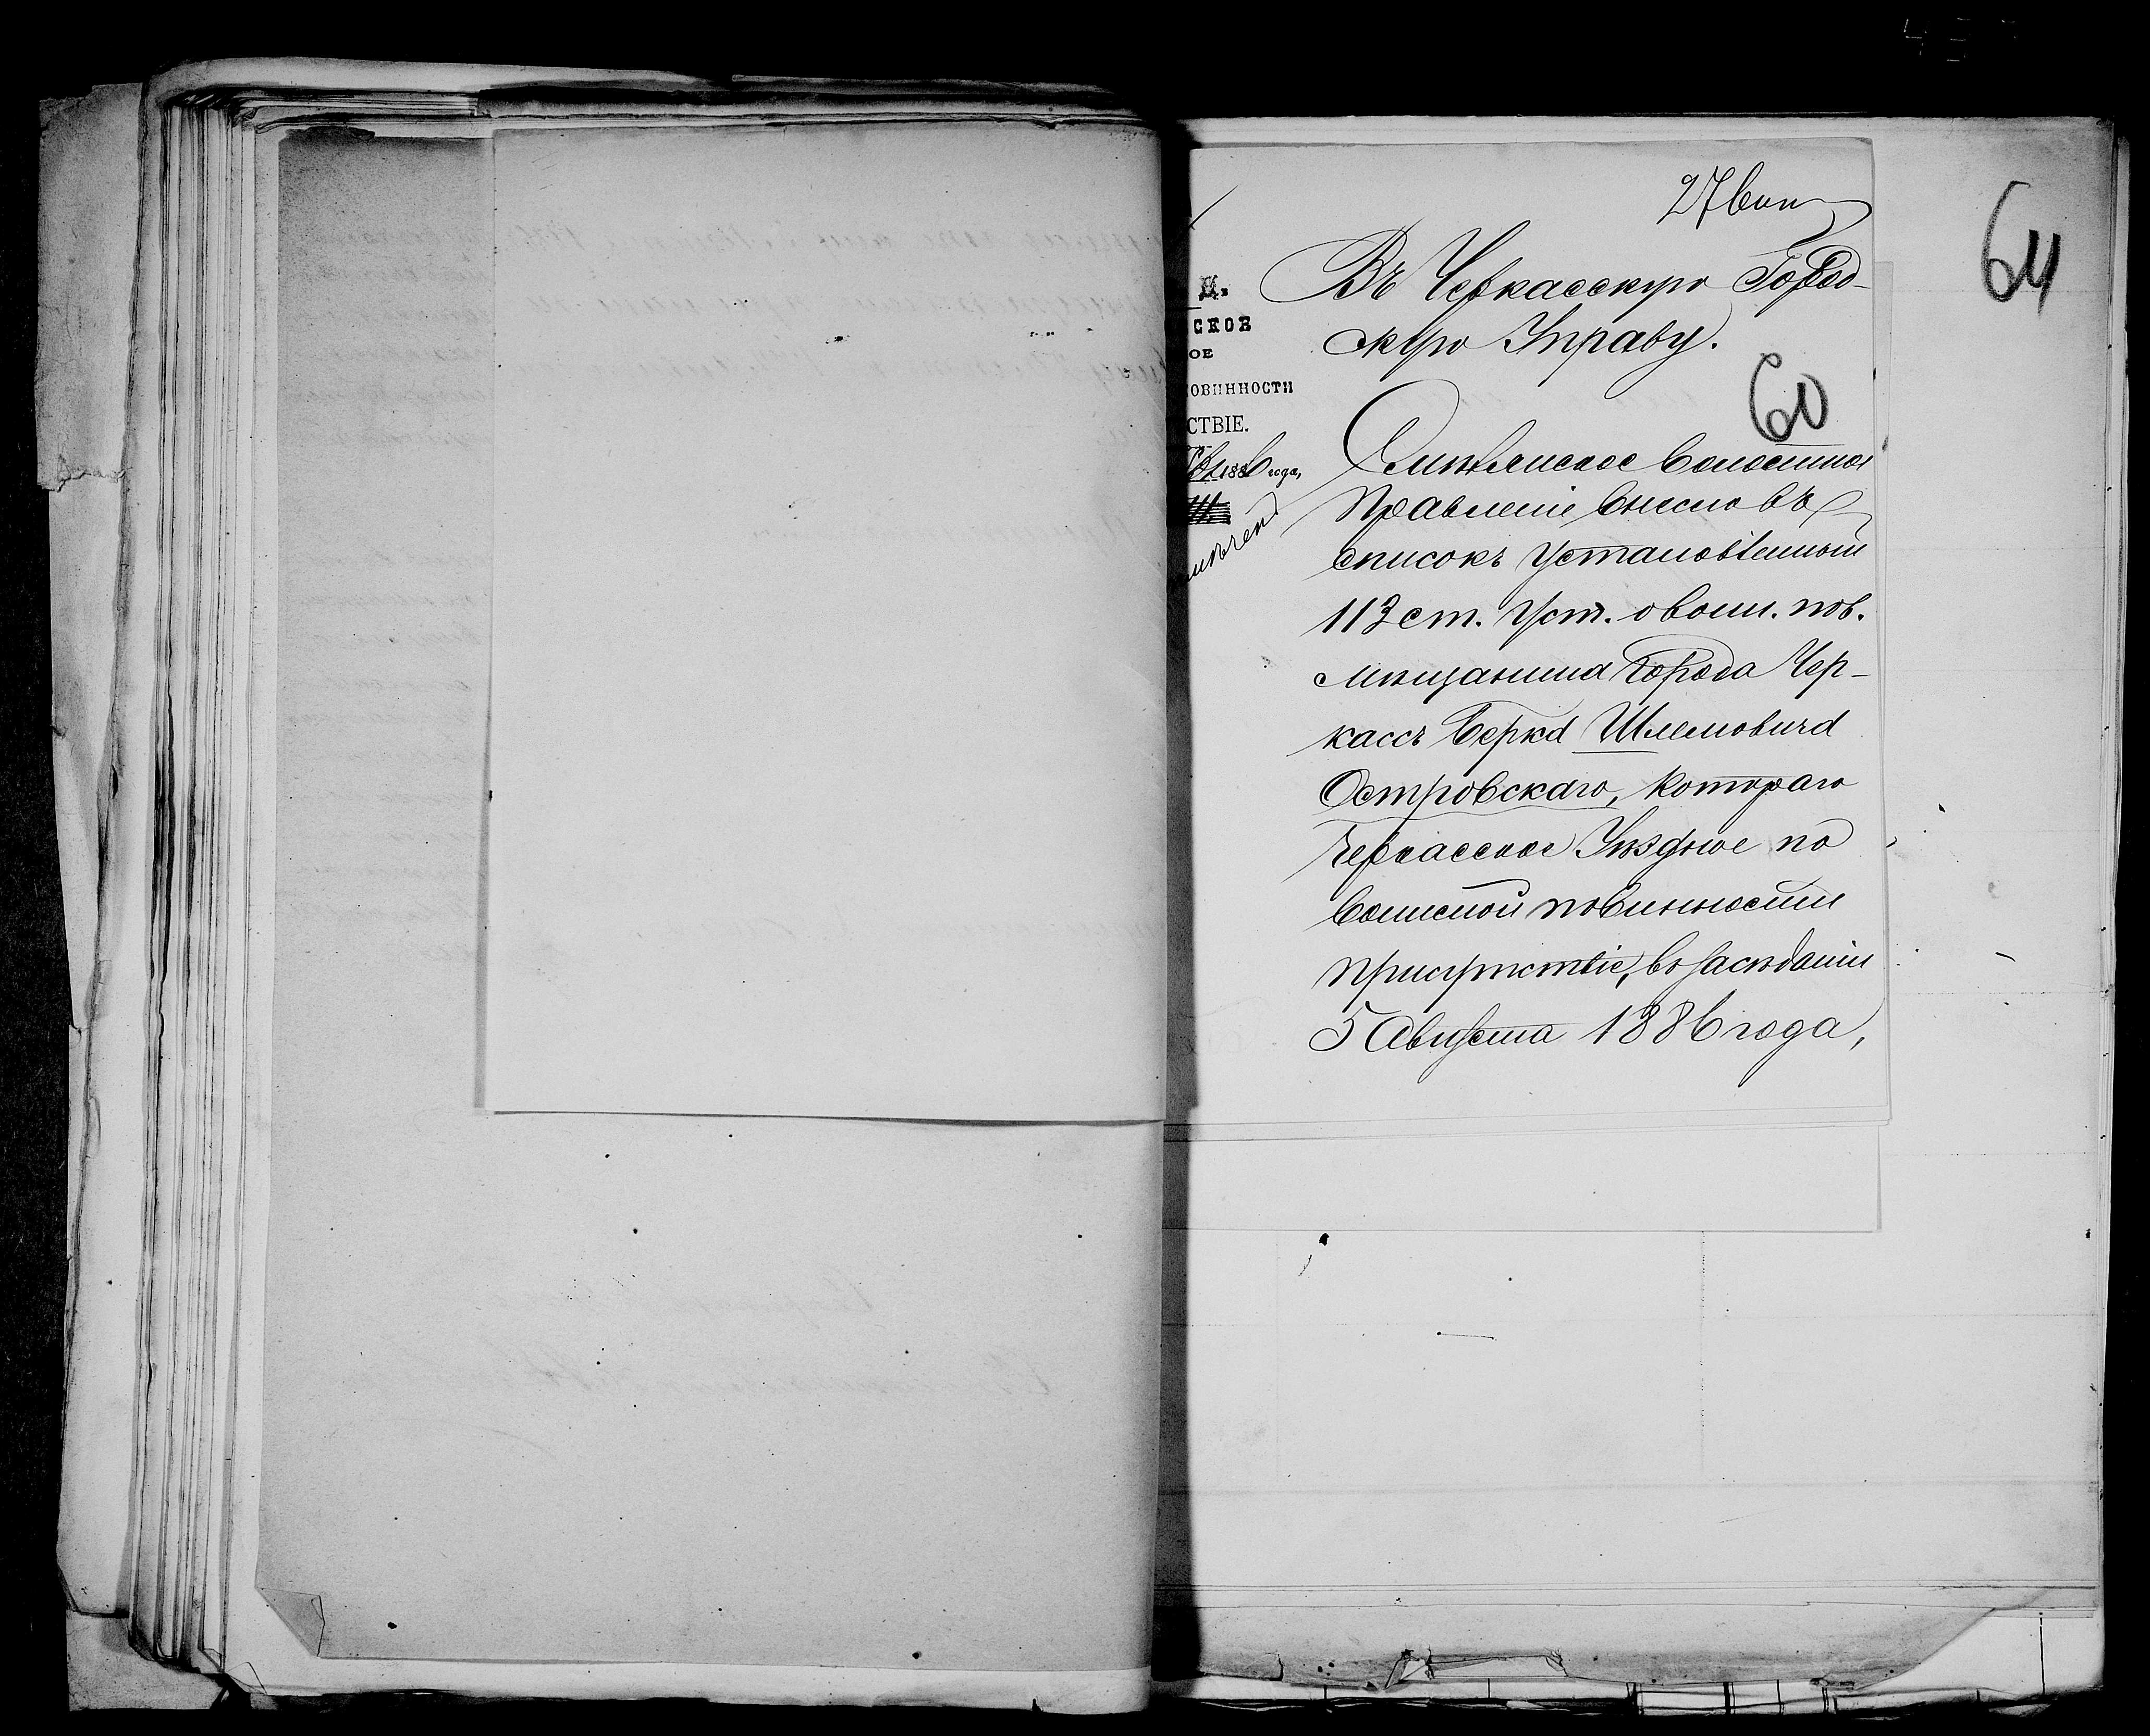 27 Сен
64
Въ Черкасскую Город-
скую Управу.
60
М.
СКОЕ
ОЕ
ОВИННОСТИ
СТВІЕ.
1886 года,
Смѣлянское Волостное
Правленіе внесло въ
списокъ установленный
113 ст. Уст. о воин. пов.
мѣщанина города Чер-
кассъ Берка Шлемовича
Островскаго, котораго
Черкасское Уѣздное по
воинской повинности
присутствіе, въ засѣданіи
5 Августа 1886 года,